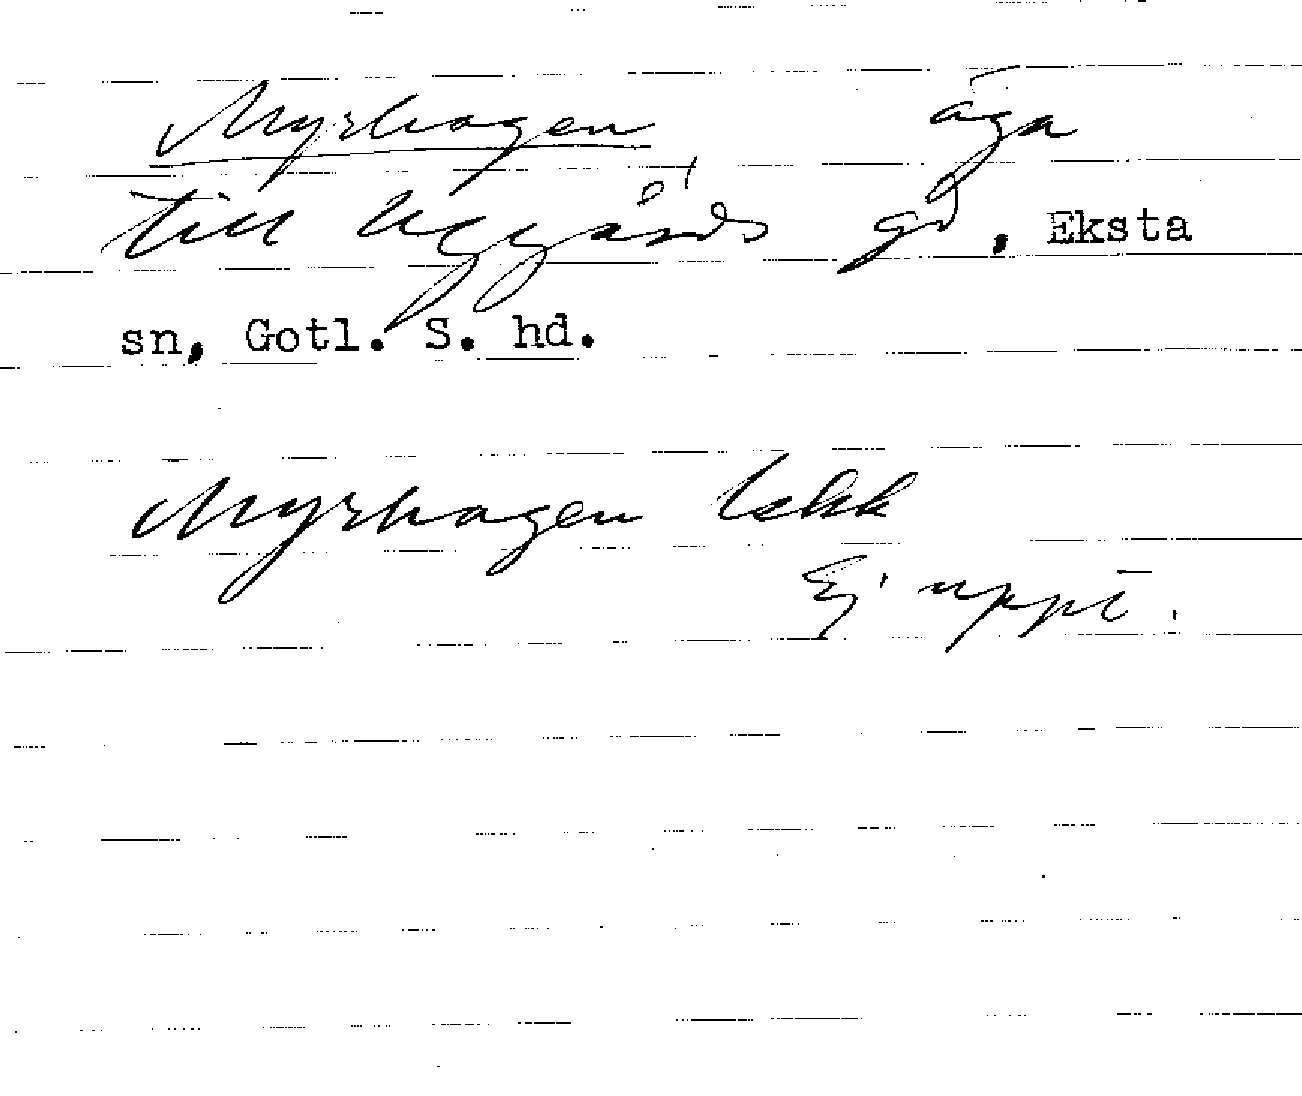 Myrhagen äga
till Uggårds gd, Eksta
sn, Gotl. S. hd.
Myrhagen lskk
Ej uppt.